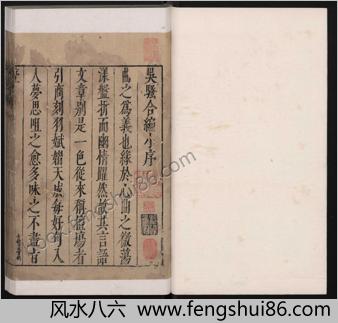 吳騷合編小序
騷之爲義也緣於心曲之微蕩
漾盤折而幽情躍然故其言語
文章别是一色從來稱擅塲者
引商刻羽斌媚天成每好句入
人夢思咀之愈多味之不盡者
风水八六 www.fengshui86.com